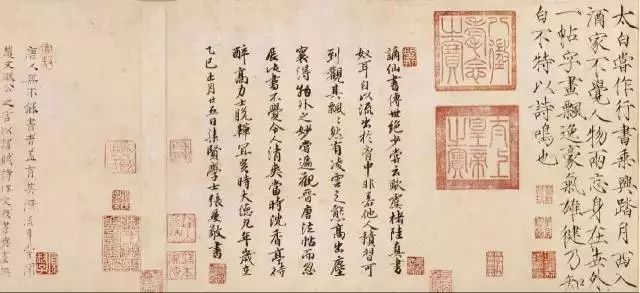 太白嘗作行書乘興踏月西入
酒家不覺人物兩忘身在世外
一帖字畫飄逸豪氣雄健乃知
白不特以詩鳴也
八徵耄念之寶
太上皇帝之寶
謫仙書傳世絕少嘗云歐虞褚陸真書
奴耳自以流出於胷中非若他人積習可
到觀其飄飄然有凌雲之態高出塵
寰得物外之妙嘗遍觀晉唐法帖而忽
展此書不覺令人清爽當時沈香亭待
醉高力士脫鞾宜矣時大德九年歲在
乙巳正月廿五日集賢學士張晏敬書
唐人無不能書者蓋言其法度